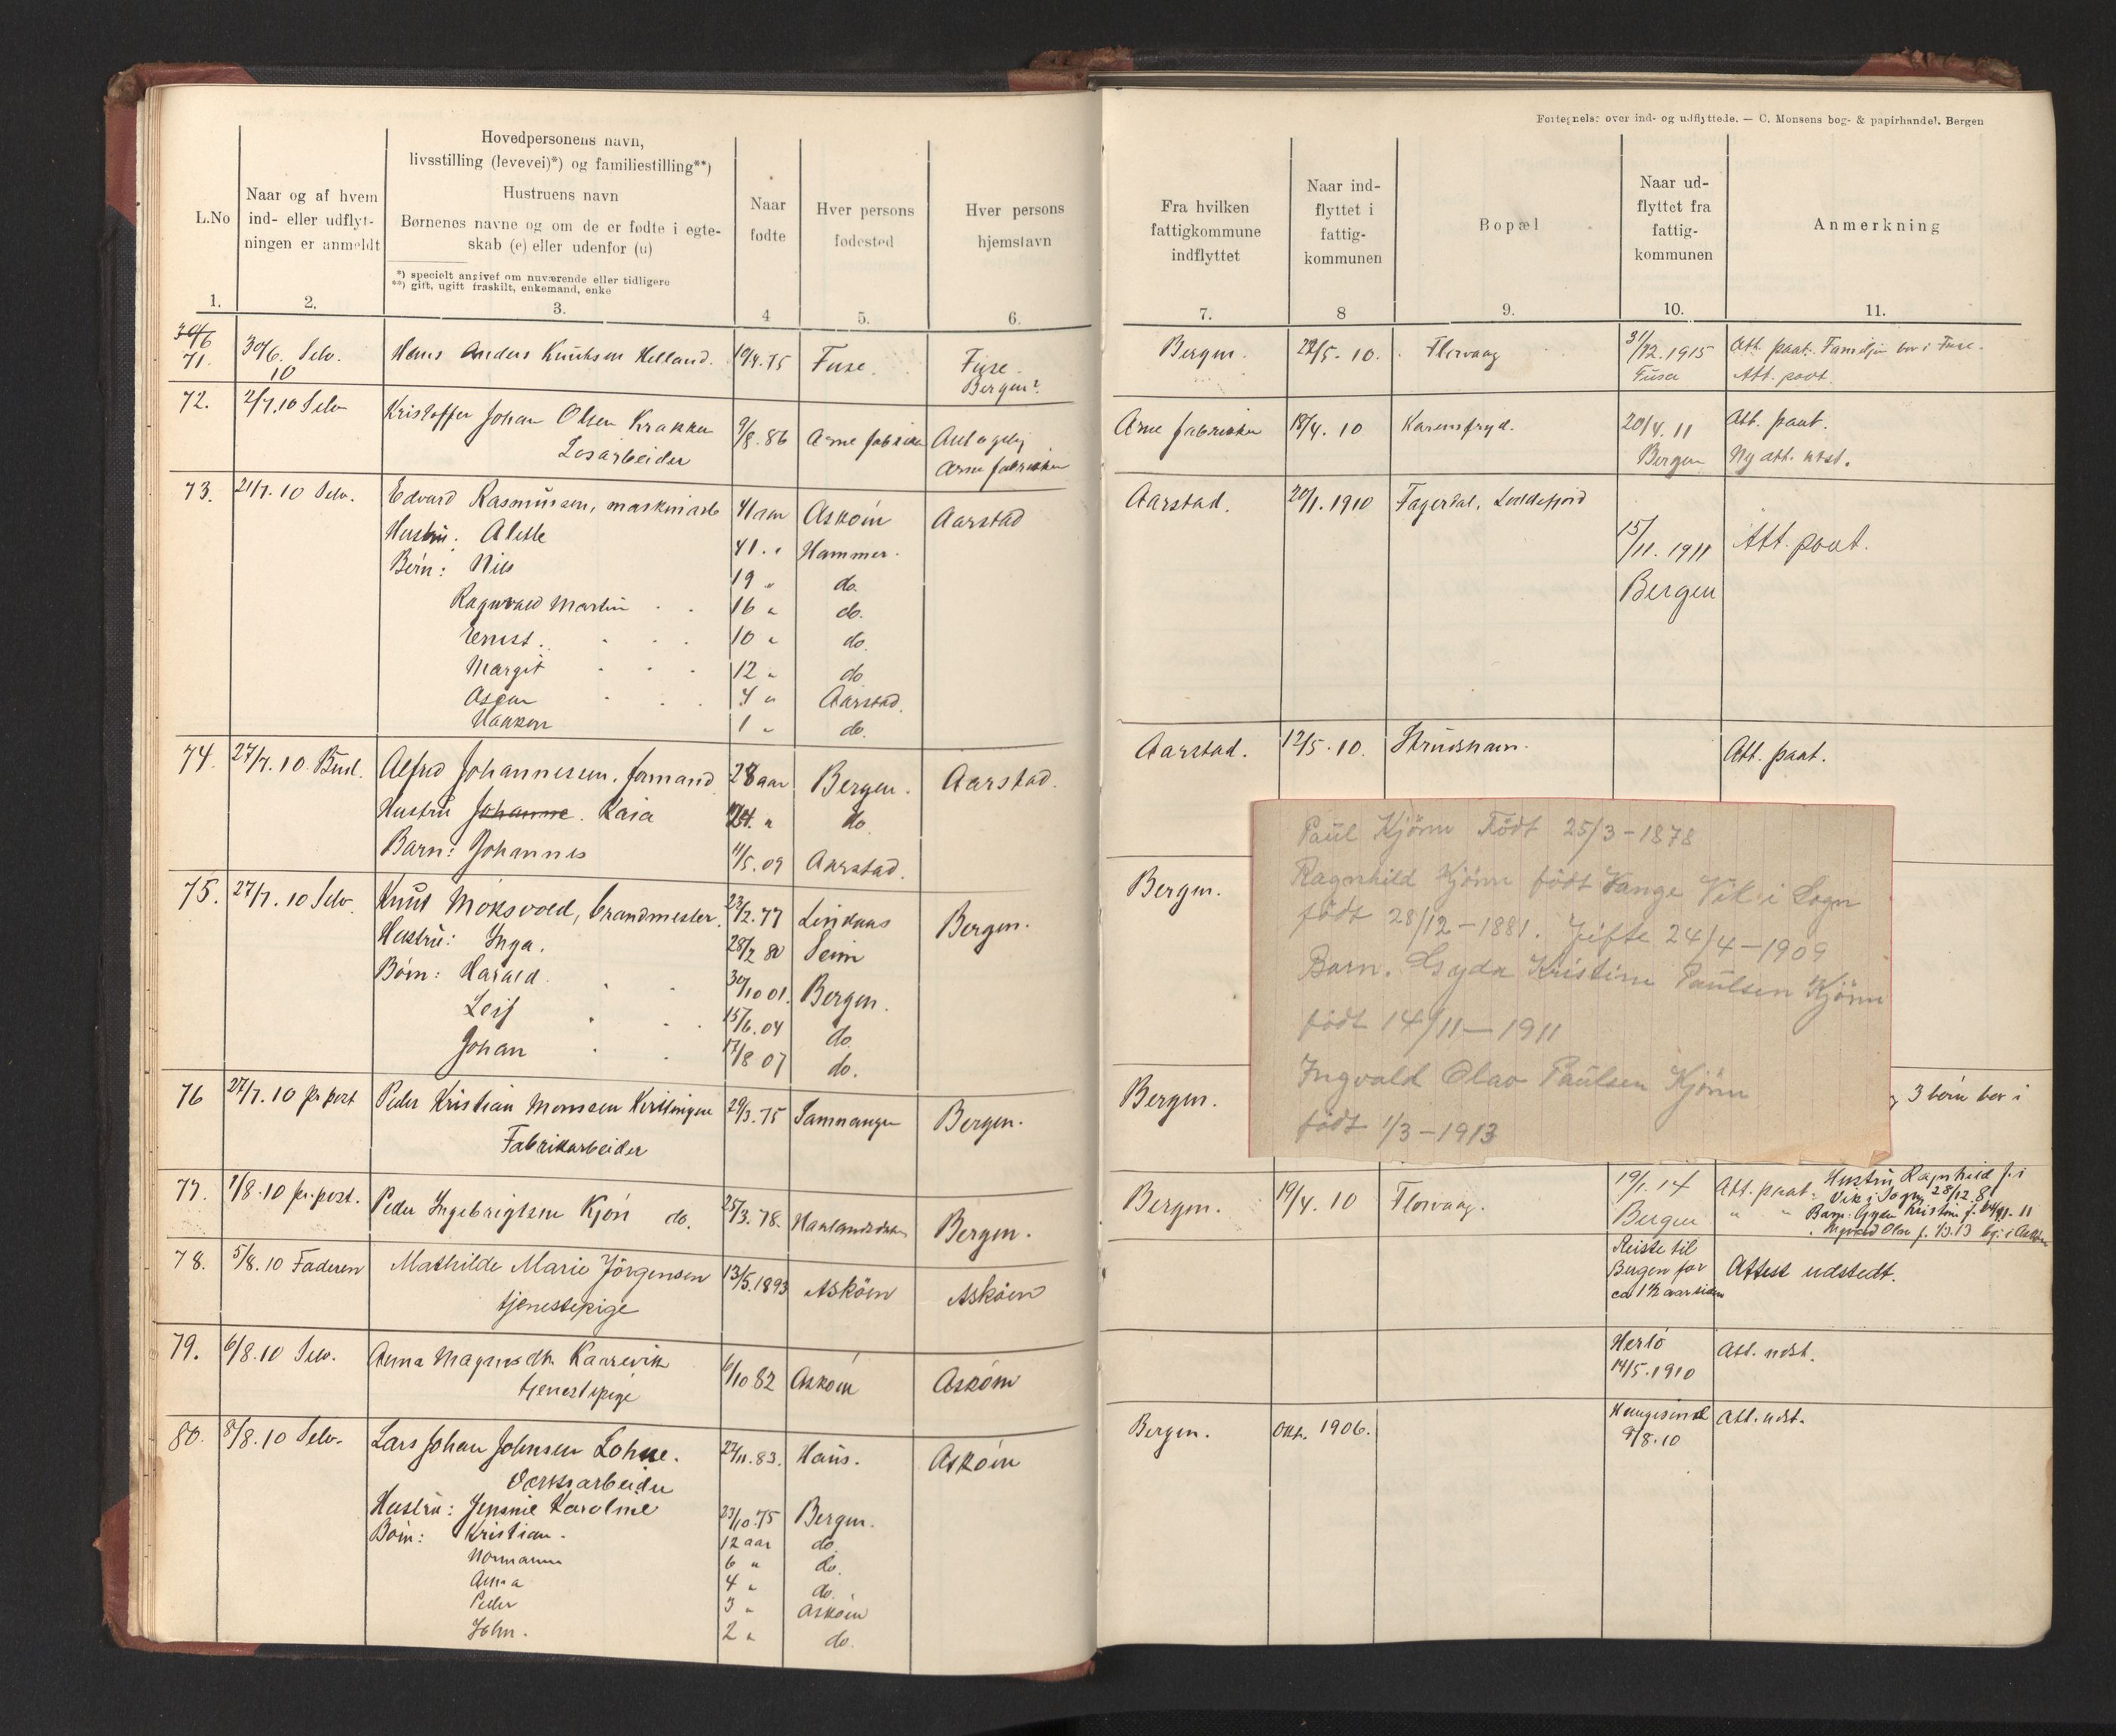 Fortegnelse over ind- og udflyttede. — C. Monsens bog- & papirhandel. Bergen
L.No
Naar og af hvem
ind- eller udflyt-
ningen er anmeldt
Hovedpersonens navn,
livsstilling (levevei)*) og familiestilling**)
Hustruens navn
Børnenes navne og om de er fødte i egte-
skab (e) eller udenfor (u)
*) specielt angivet om nuværende eller tidligere
**) gift, ugift fraskilt, enkemand, enke
Naar
fødte
Hver persons
fødested
Hver persons
hjemstavn
Fra hvilken
fattigkommune
indflyttet
Naar ind-
flyttet i
fattig-
kommunen
Bopæl
Naar ud-
flyttet fra
fattig-
kommunen
Anmerkning
1. 2. 3. 4 5. 6. 7. 8 9. 10. 11.
30/6
71. 30/6. Selv. Hans Anders Knutsen Helland. 19/4.75 Fuse. Fuse. Bergen. 22/5-10. Florvaag 31/12.1915 Att. paat. Familjen bor i Fuse.
10 Bergen? Fusa Att. paat.
72. 2/7.10 Selv Kristoffer Johan Olsen Krakken 9/8.86 Arne fabrikker Antagelig Arne fabrikker 18/4.10 Karensfryd. 20/4.11 Att. paat.
Løsarbeider Arne fabrikker Bergen Ny att. utst.
73. 21/7.10 Selv. Edvard Rasmussen, maskinarb 41 aar Askøin Aarstad Aarstad. 20/1.1910 Fagerdal, Loddefjord
Hustru: Alette 41 " Hammer. 15/11.1911 Att. paat.
Børn: Nils 19 " do. Bergen
Ragnvald Martin 16 " do.
Ernst. 10 " do.
Margit 12 " do
Asgar 4 " Aarstad.
Haakon 1 " do.
74. 27/7.10 Bud. Alfred Johannessen, formand 28 aar Bergen. Aarstad. Aarstad. 12/5.10. Strudshavn. Att. paat.
Hustru Johanne. Kaia 24. " do
Barn: Johannes 11/5.09 Aarstad.
75. 27/7.10 Selv. Knut Moksvold, brandmester. 23/2.77 Lindaas Bergen. Bergen.
Hustru: Inga. 28/2 80 Seim
Børn: Harald. 30/10 01. Bergen.
Leif 15/6.04 do.
Johan 17/8 07 do.
Paul Kjønn Født 25/3-1878
Ragnhild Kjønn født Vange Vik i Sogn
født 28/12-1881. Gifte 24/4-1909
Barn. Gyda Kristine Paulsen Kjønn
født 14/11-1911
Ingvald Olav Paulsen Kjønn
født 1/3-1913
76 27/7.10 pr post Peder Kristian Monsen 29/3.75 Samnanger Bergen. Bergen. 3 børn bor i
Fabrikarbeider
77. 1/8.10 pr. post. Peder Ingebrigtsen Kjøn do. 25/3.78. Bergen. Bergen. 19/4.10 Florvaag. 19/1.14 Att. paat. Hustru Ragnhild f. i
Bergen Vik i Sogn 28/12.81
" " Barn: Gyda Kristine f. 14/11-11
Ingvald Olav f. 1/3.13 bgi. i Askøin
78. 5/8.10 Faderen Mathilde Marie Jörgensen 13/5.1893 Asköen Asköen Reiste til
tjenestepige Bergen for Attest udstedt.
ca 1½ aar siden
79. 6/8.10 Selv. Anna Magnusdtr. Kaarevik 6/10 82 Askøin Askøin Herlø Att. udst.
tjenestepige 14/5.1910
80. 8/8.10 Selv. Lars Johan Johnsen Lohne. 22/11.83. Haus. Askøin Bergen. Okt. 1906. Haugesund Att. udst.
Verksarbeider 9/8.10
Hustru: Jensine Karoline 23/10.75 Bergen.
Børn: Kristian. 12 aar do.
Normann 6 " do.
Anna 4 " do.
Peder 3 " Askøin
John. 2 " do.